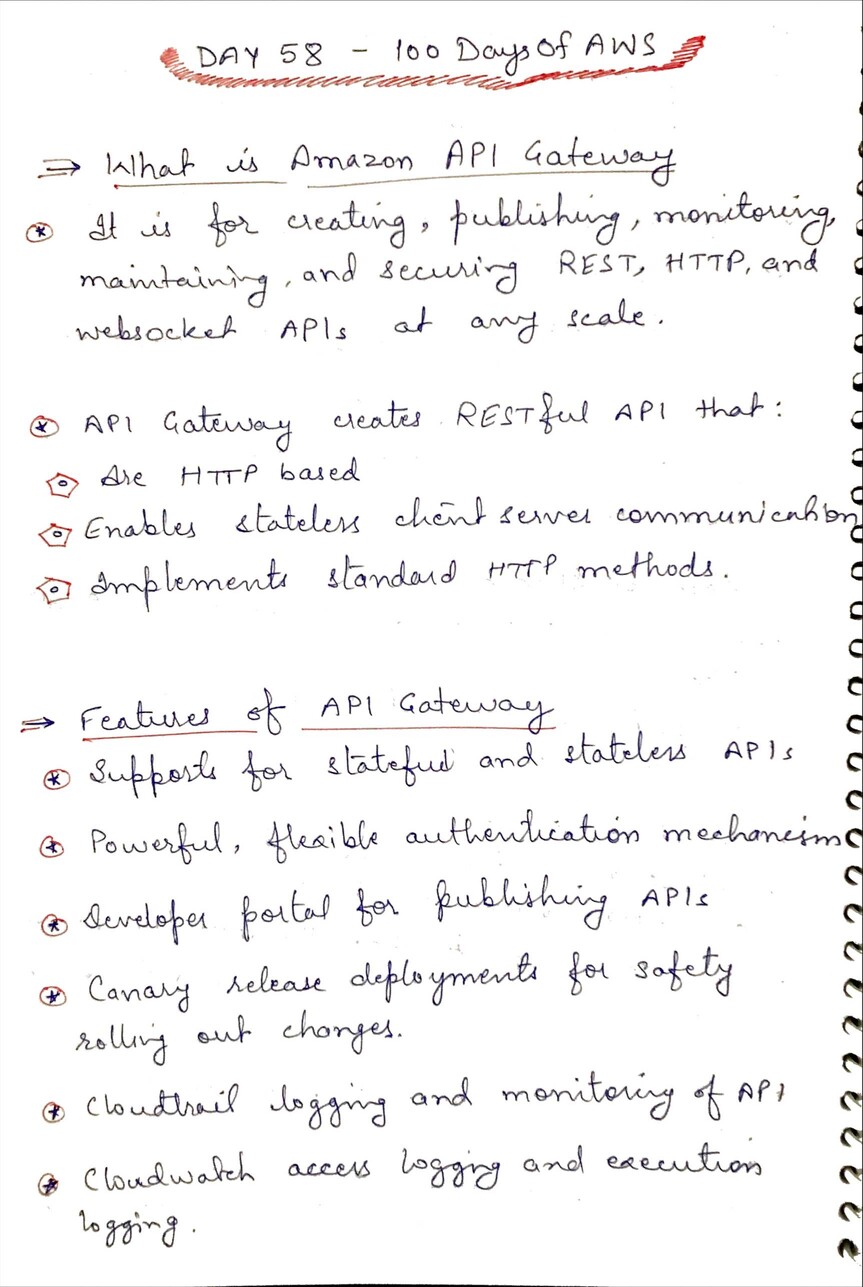 DAY 58 - 100 Days Of AWS
⇒ What is Amazon API Gateway
It is for creating, publishing, monitoring,
maintaining, and securing REST, HTTP, and
websocket APIs at any scale.
API Gateway creates RESTful API that:
Are HTTP based
Enables stateless client server communication
Implements standard HTTP methods.
⇒ Features of API Gateway
Supports for stateful and stateless APIs
Powerful, flexible authentication mechanism
Developer portal for publishing APIs
Canary release deployments for safety
rolling out changes.
Cloudtrail logging and monitoring of API
Cloudwatch access loggng and execution
logging.